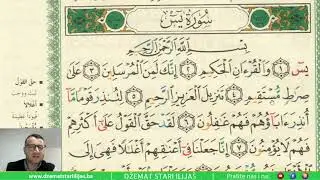 سُورَةُ يسٓ
بِسْمِ اللَّهِ الرَّحْمَٰنِ الرَّحِيمِ
يسٓ ١ وَالْقُرْءَانِ الْحَكِيمِ ٢ إِنَّكَ لَمِنَ الْمُرْسَلِينَ ٣ عَلَىٰ
صِرَٰطٍ مُّسْتَقِيمٍ ٤ تَنزِيلَ الْعَزِيزِ الرَّحِيمِ ٥ لِتُنذِرَ قَوْمًا مَّا
أُنذِرَ ءَابَاؤُهُمْ فَهُمْ غَٰفِلُونَ ٦ لَقَدْ حَقَّ الْقَوْلُ عَلَىٰ أَكْثَرِهِمْ
فَهُمْ لَا يُؤْمِنُونَ ٧ إِنَّا جَعَلْنَا فِي أَعْنَٰقِهِمْ أَغْلَٰلًا فَهِيَ إِلَى
حَقَّ الْقَوْلُ
أَغْلَالًا
www.dzematstariilijas.ba
DŽEMAT STARI ILIJAŠ
Pratite nas i na: